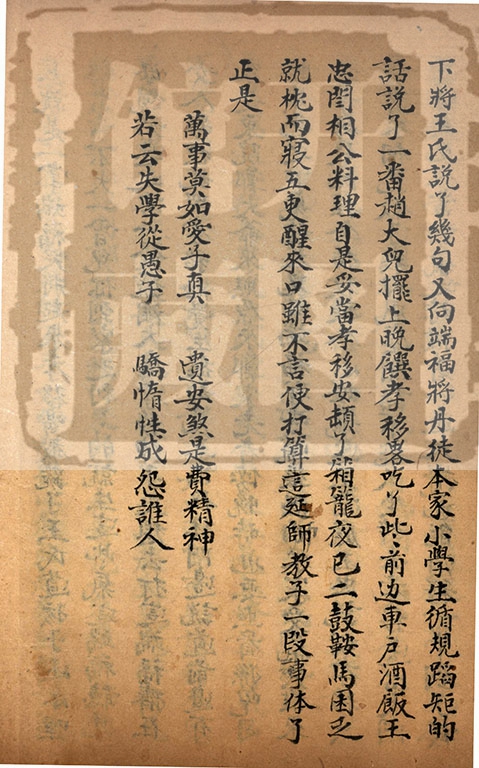 下將王氏說了幾句又向端福將丹徒本家小學生循規蹈矩的
話說了一番趙大兒擺上晚饌孝移畧吃了些〻前边車戶酒飯王
忠閻相公料理自是妥當孝移安頓了箱籠夜已二鼓鞍馬困乏
就枕而寢五更醒來口雖不言便打算這延師教子一段事体了
正是
萬事莫如愛子真 遺安煞是費精神
若云失學從愚子 驕惰性成怨誰人